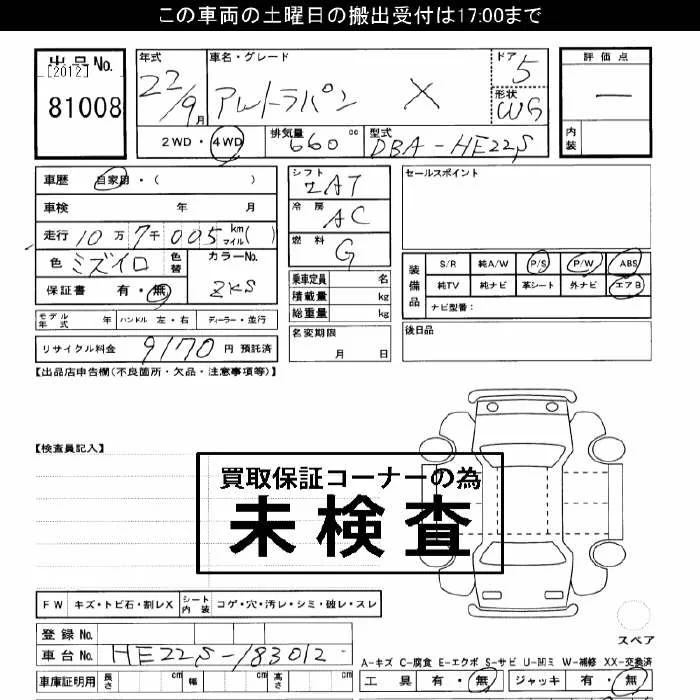 この車両の土曜日の搬出受付は17:00まで
出品No.
[2012]
81008
年式
22/9月
車名・グレード
アルトラパン X
ドア
5
形状
WG
評価点
—
内装
2WD・4WD
排気量
660 cc
型式
DBA-HE22S
車歴 自家用・( )
車検 年 月
走行 10万7千005 km マイル ( )
色 ミズイロ 色替
カラーNo.
ZKS
保証書 有・無
シフト
2AT
冷房
AC
燃料
G
乗車定員 名
積載量 kg
総重量 kg
セールスポイント
装備品
S/R 純A/W P/S P/W ABS
純TV 純ナビ 革シート 外ナビ エアB
ナビ型番:
モデル年式 年 ハンドル 左・右 ディーラー・並行
名変期限
月 日
後日品
リサイクル料金 9170 円 預託済
【出品店申告欄(不良箇所・欠品・注意事項等)】
【検査員記入】
買取保証コーナーの為
未検査
FW キズ・トビ石・割レX シート内装 コゲ・穴・汚レ・シミ・破レ・スレ
登録No.
車台No. HE22S-183012
車庫証明用 長さ cm 幅 cm 高さ cm
スペア
A-キズ C-腐食 E-エクボ S-サビ U-凹ミ W-補修 XX-交換済
工具 有・無 ジャッキ 有・無